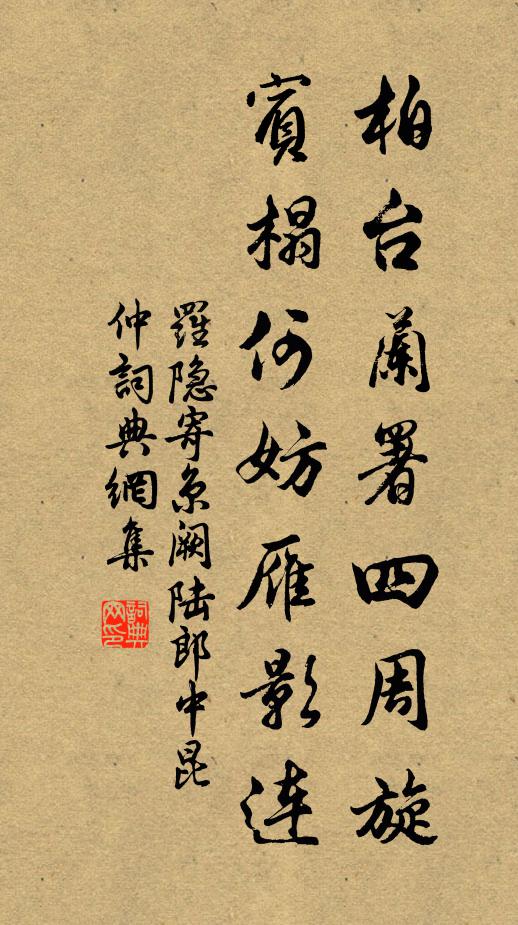 柏台蘭署四周旋
賓榻何妨雁影連
羅隐寄京阙陆郎中昆
仲詞典網集
詞典
网印